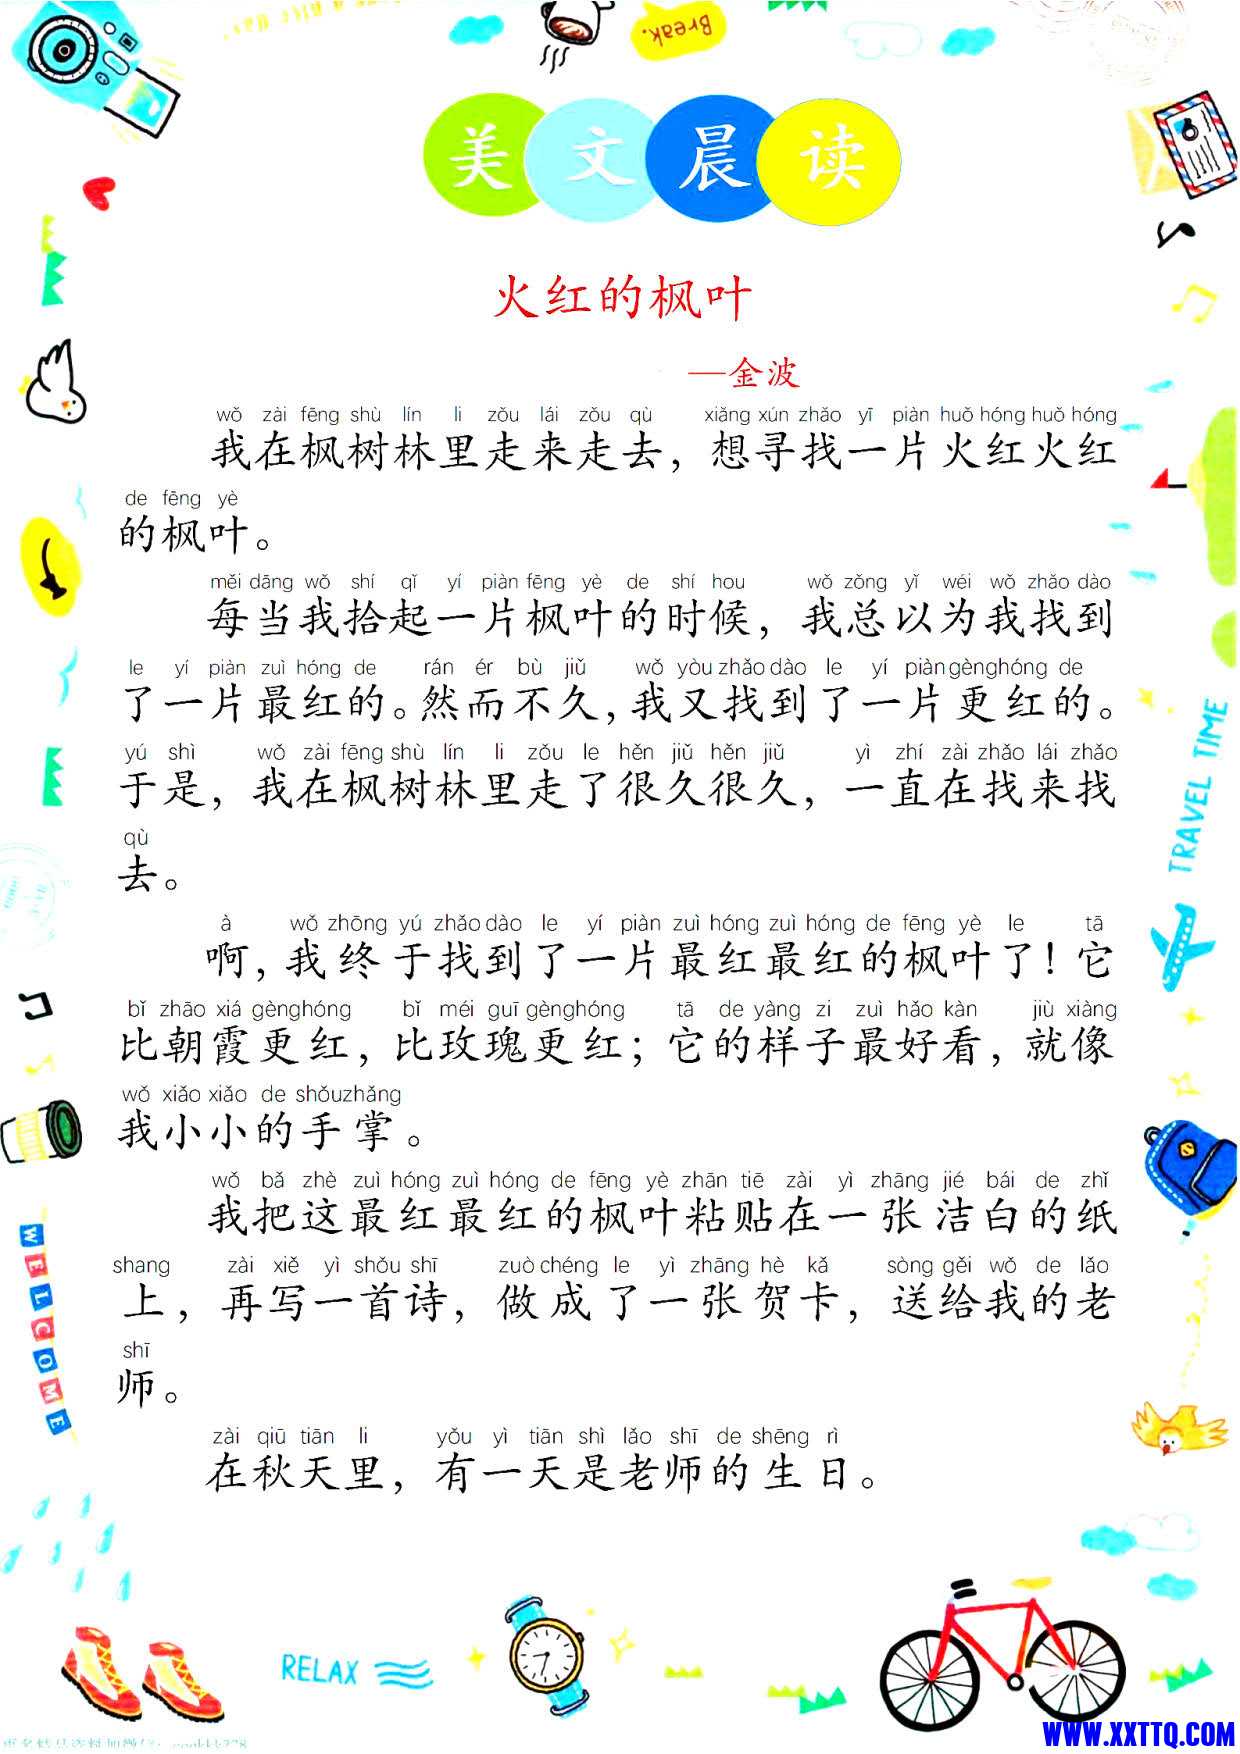 Break.
美文晨读
火红的枫叶
—金波
wǒ zài fēng shù lín li zǒu lái zǒu qù xiǎng xún zhǎo yī piàn huǒ hóng huǒ hóng
我在枫树林里走来走去，想寻找一片火红火红
de fēng yè
的枫叶。
měi dāng wǒ shí qǐ yí piàn fēng yè de shí hou wǒ zǒng yǐ wéi wǒ zhǎo dào
每当我拾起一片枫叶的时候，我总以为我找到
le yí piàn zuì hóng de rán ér bù jiǔ wǒ yòu zhǎo dào le yí piàn gèng hóng de
了一片最红的。然而不久，我又找到了一片更红的。
yú shì wǒ zài fēng shù lín li zǒu le hěn jiǔ hěn jiǔ yì zhí zài zhǎo lái zhǎo
于是，我在枫树林里走了很久很久，一直在找来找
qù
去。
à wǒ zhōng yú zhǎo dào le yí piàn zuì hóng zuì hóng de fēng yè le tā
啊，我终于找到了一片最红最红的枫叶了！它
bǐ zhāo xiá gèng hóng bǐ méi guī gèng hóng tā de yàng zi zuì hǎo kàn jiù xiàng
比朝霞更红，比玫瑰更红；它的样子最好看，就像
wǒ xiǎo xiǎo de shǒu zhǎng
我小小的手掌。
wǒ bǎ zhè zuì hóng zuì hóng de fēng yè zhān tiē zài yì zhāng jié bái de zhǐ
我把这最红最红的枫叶粘贴在一张洁白的纸
shang zài xiě yì shǒu shī zuò chéng le yì zhāng hè kǎ sòng gěi wǒ de lǎo
上，再写一首诗，做成了一张贺卡，送给我的老
shī
师。
zài qiū tiān li yǒu yì tiān shì lǎo shī de shēng rì
在秋天里，有一天是老师的生日。
TRAVEL TIME
WELCOME
RELAX
WWW.XXTTQ.COM